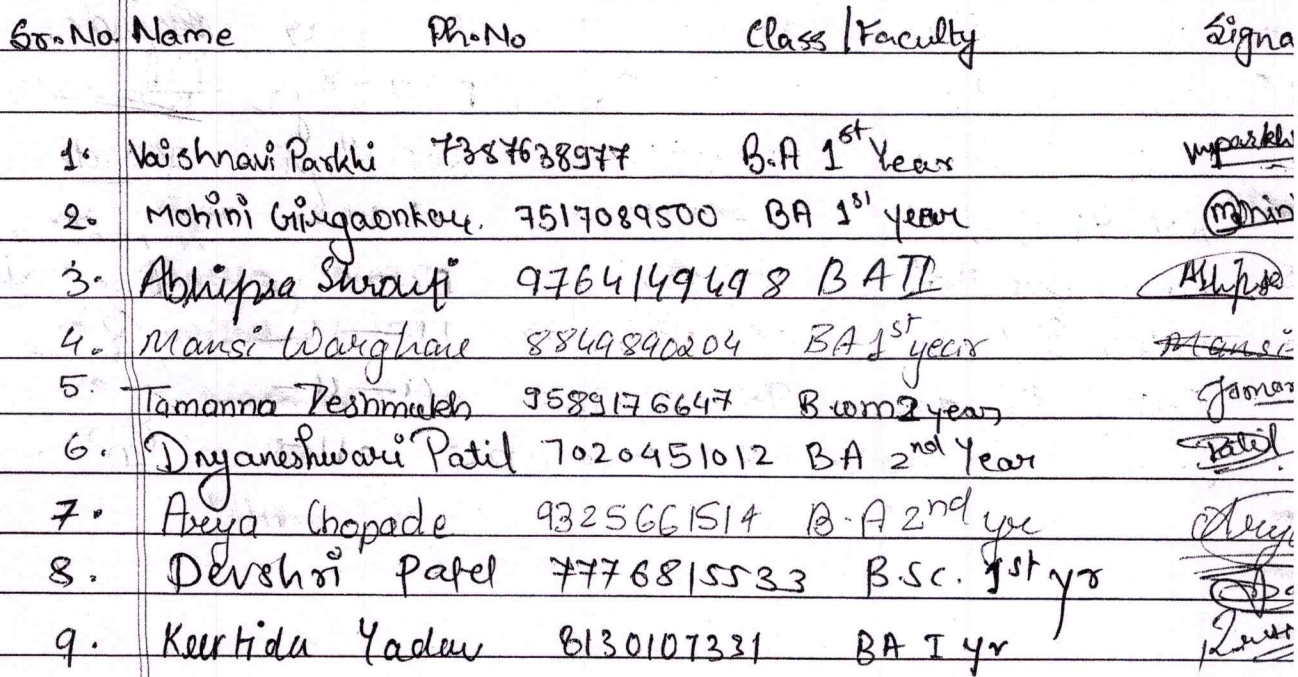 Sr. No. Name Ph. No Class / Faculty Signa
1. Vaishnavi Parkhi 7387638977 B.A 1st Year vparkhi
2. Mohini Girgaonkar. 7517089500 BA 1st year Mohini
3. Abhipsa 9764149498 B A II Abhipsa
4. Mansi Warghane 8849890204 BA 1st year Mansi
5. Tamanna Deshmukh 9589176647 B com 2 year
6. Dnyaneshwari Patil 7020451012 BA 2nd Year Patil
7. Arya Chopade 9325661514 B.A 2nd yr Arya
8. Devshri Patel 7776815533 B.SC. 1st yr
9. Yadav 8130107331 BA I yr